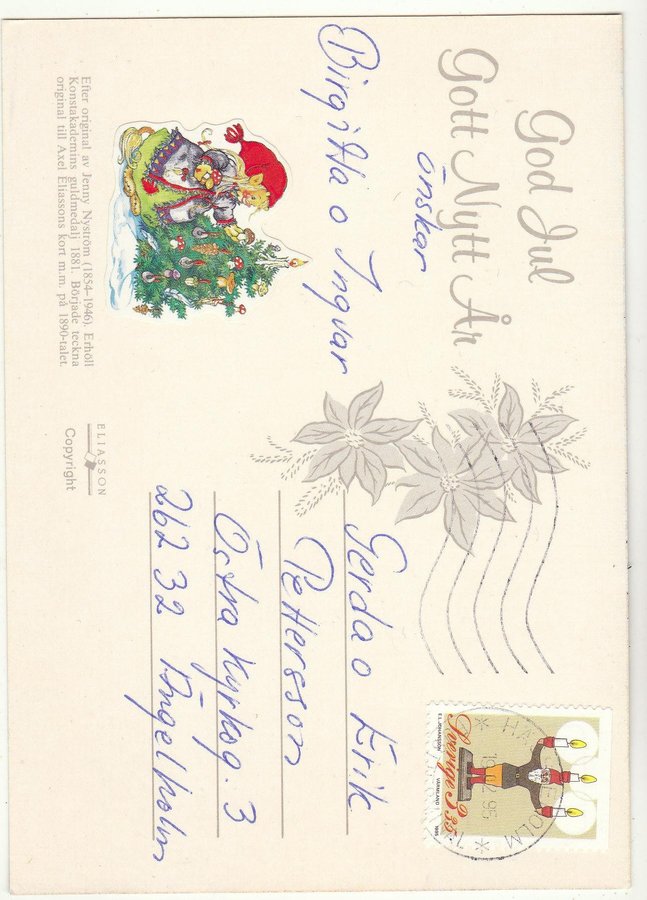 God Jul
Gott Nytt År
önskar
Birgitta o Ingvar
Efter original av Jenny Nyström (1854–1946). Erhöll
Konstakademins guldmedalj 1881. Började teckna
original till Axel Eliassons kort m.m. på 1890-talet.
ELIASSON
Copyright
Gerda o Erik
Pettersson
Östra Kyrkog. 3
262 32 Ängelholm
Sverige 3.35
VÄRMLAND
1995
95